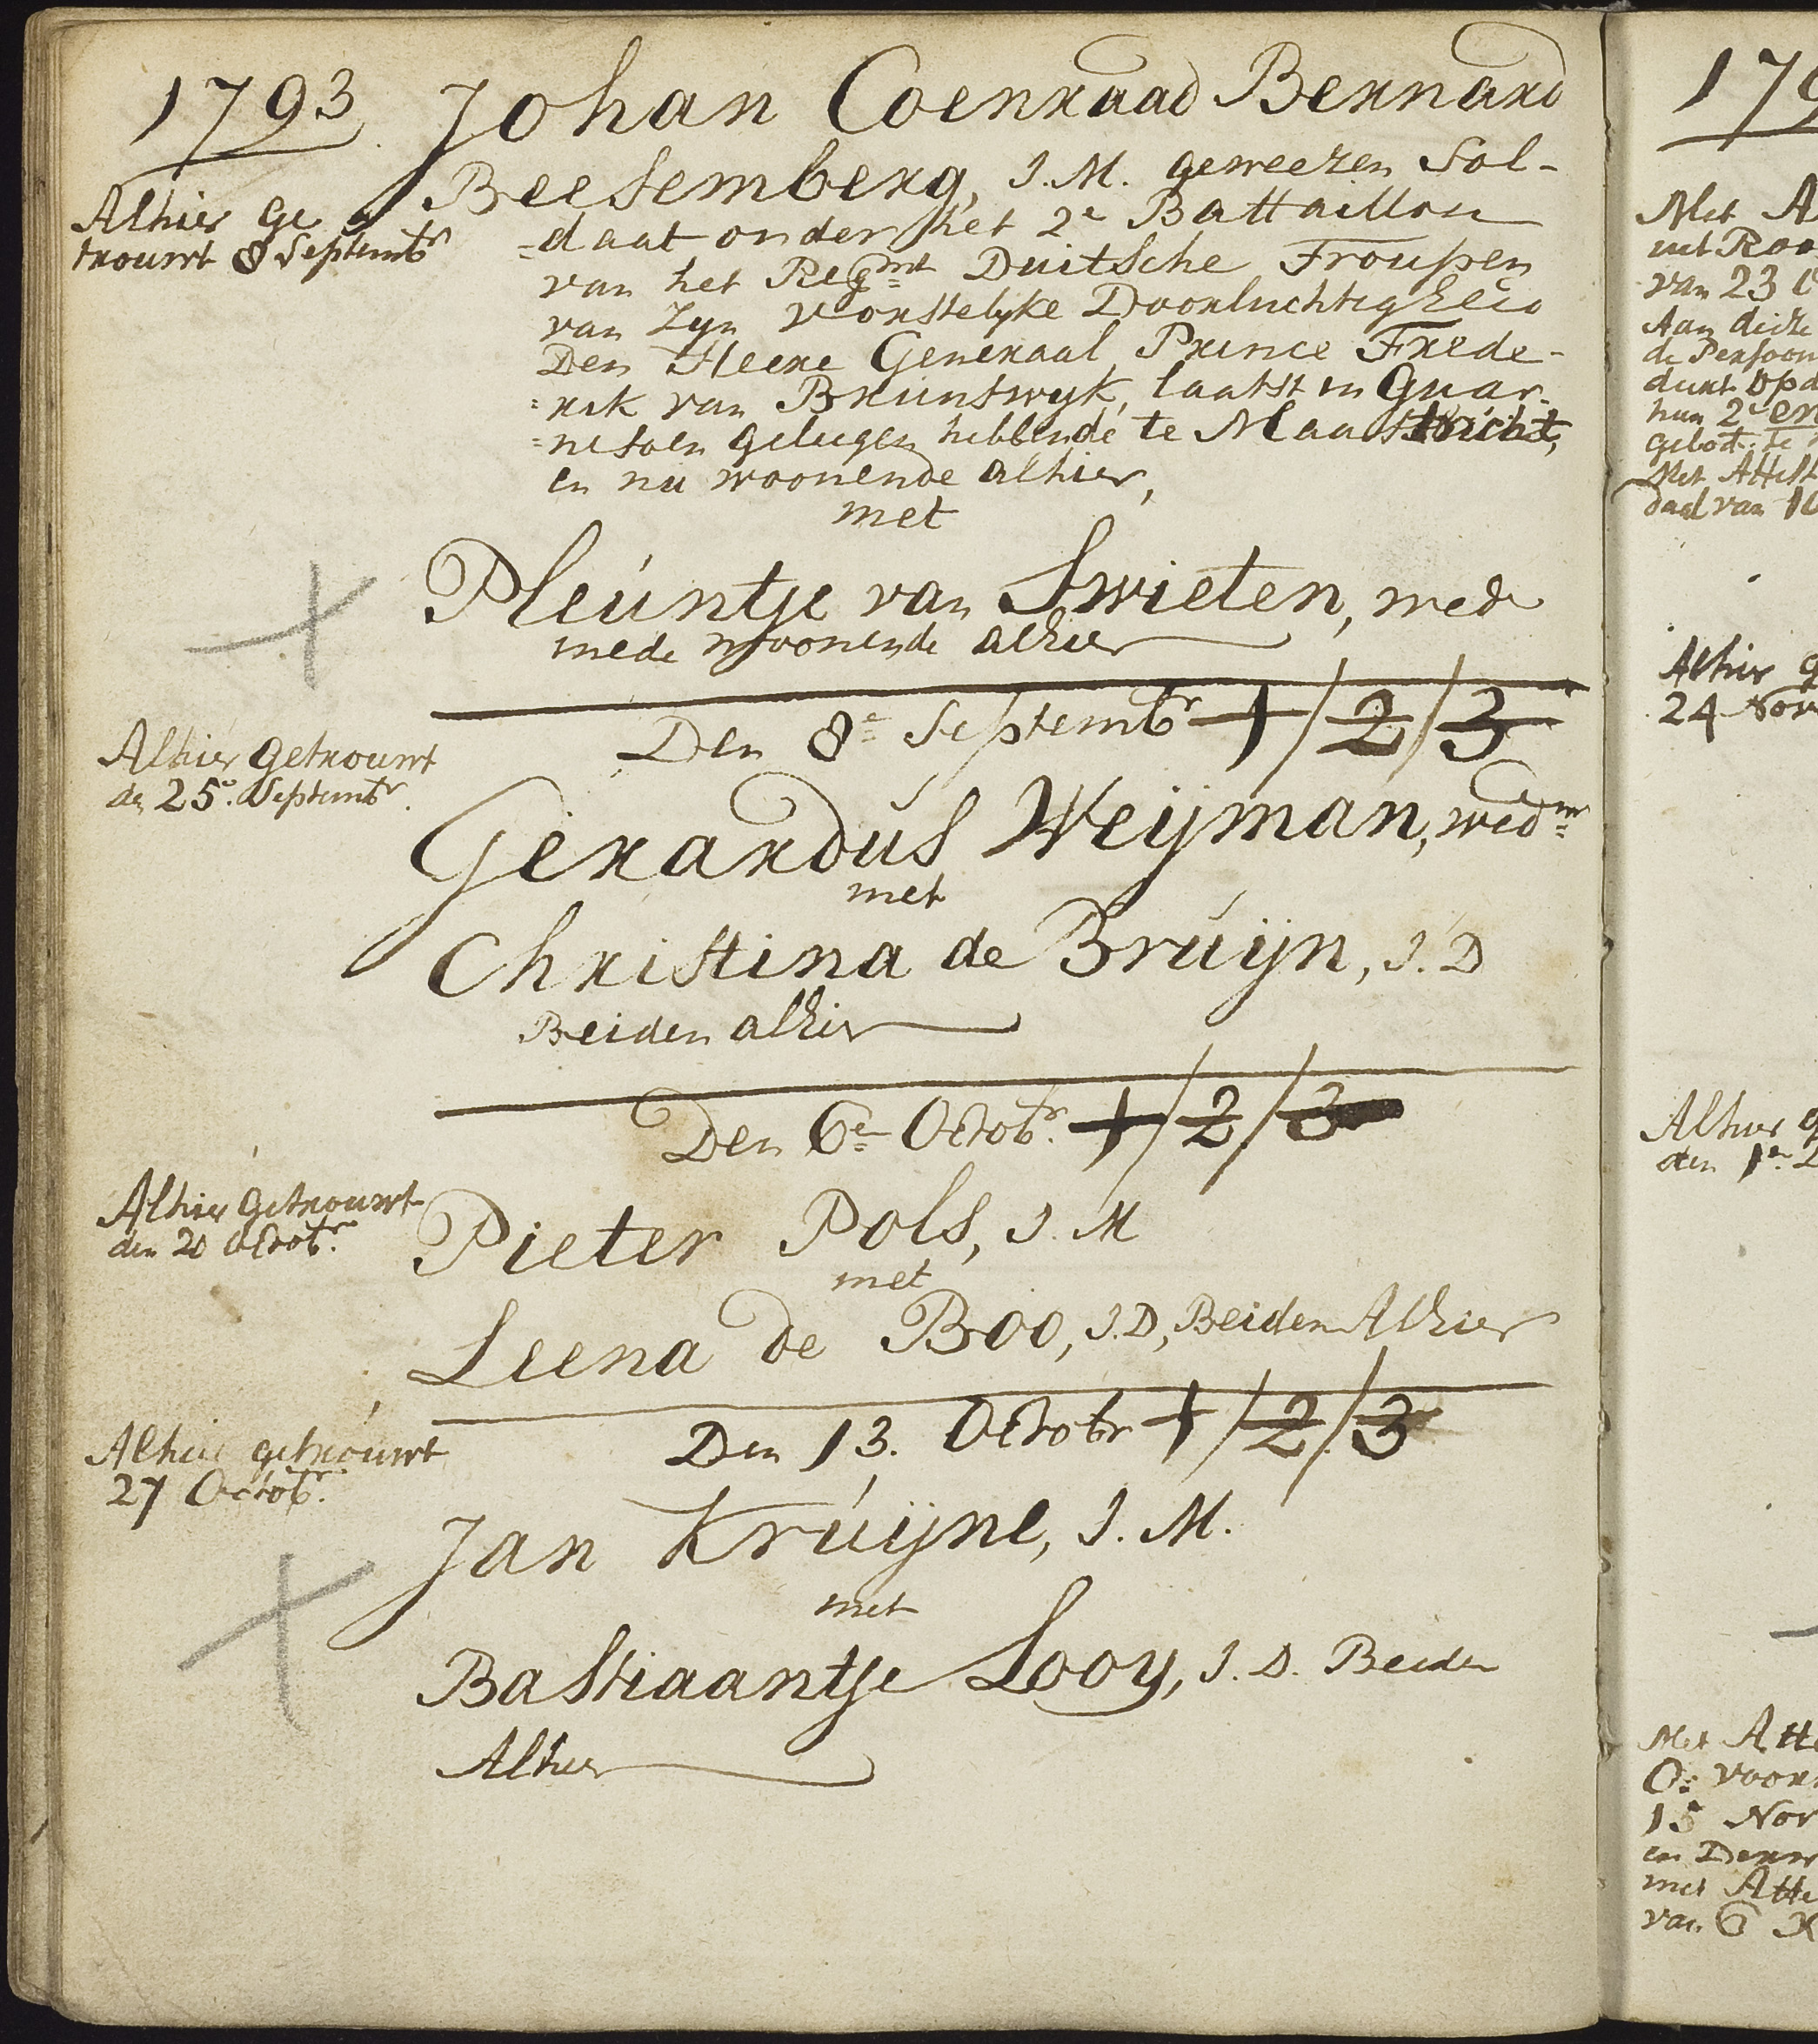 1793
Johan Coenraad Bernard
Beesemberg, J.M. geweezen Sol-
Alhier ge
trouwt 8 Septembr
=daat onder het 2e Battaillon
van het Regmt Duitsche Troupen
van Zyn Vorstelyke Doorluchtigheid
Den Heere Generaal Prince Frede-
=rik van Brunswyk, laatst in Guar-
=nisoen geleegen hebbende te Maastricht,
en nu woonende alhier,
met
Pleúntje van Swieten, wede
mede woonende alhier
Den 8e Septembr 1/2/3
Alhier getrouwt
den 25e Septembr.
Gerardus Weijman, wedmr
met
Christina de Brúijn, J.D
Beiden alhier
Den 6e Octobr. 1/2/3
Alhier getrouwt
den 20 Octobr.
Pieter Pols, J.M
met
Leena de Boo, J.D, Beiden Alhier
Den 13. Octobr 1/2/3
Alhier getrouwt
27 Octobr.
Jan Krúijne, J.M.
met
Bastiaantje Looy, J.D. Beiden
Alhier
179
Met A
uit Roo
van 23
Aan deeze
de Persoon
hun 2e en
gebod. te
Met Attest
daal van 1
Alhier g
24 Nov
Alhier g
den 1e
Met Atte
15 Nov
met Atte
van 6